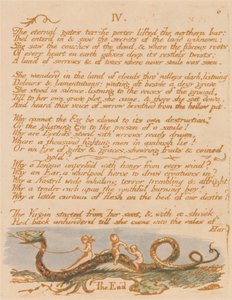 IV.
The eternal gates terrific porter lifted the northern bar:
Thel enter'd in & saw the secrets of the land unknown;
She saw the couches of the dead, & where the fibrous roots
Of every heart on earth infixes deep its restless twists:
A land of sorrows & of tears where never smile was seen.
She wanderd in the land of clouds thro' valleys dark, listning
Dolours & lamentations: waiting oft beside a dewy grave
She stood in silence, listning to the voices of the ground,
Till to her own grave plot she came, & there she sat down,
And heard this voice of sorrow breathed from the hollow pit.
Why cannot the Ear be closed to its own destruction?
Or the glistning Eye to the poison of a smile!
Why are Eyelids stord with arrows ready drawn,
Where a thousand fighting men in ambush lie?
Or an Eye of gifts & graces, show'ring fruits & coined
gold!
Why a Tongue impress'd with honey from every wind?
Why an Ear, a whirlpool fierce to draw creations in?
Why a Nostril wide inhaling terror, trembling & affright
Why a tender curb upon the youthful burning boy!
Why a little curtain of flesh on the bed of our desire?
The Virgin started from her seat, & with a shriek
Fled back unhinderd till she came into the vales of
Har
The End